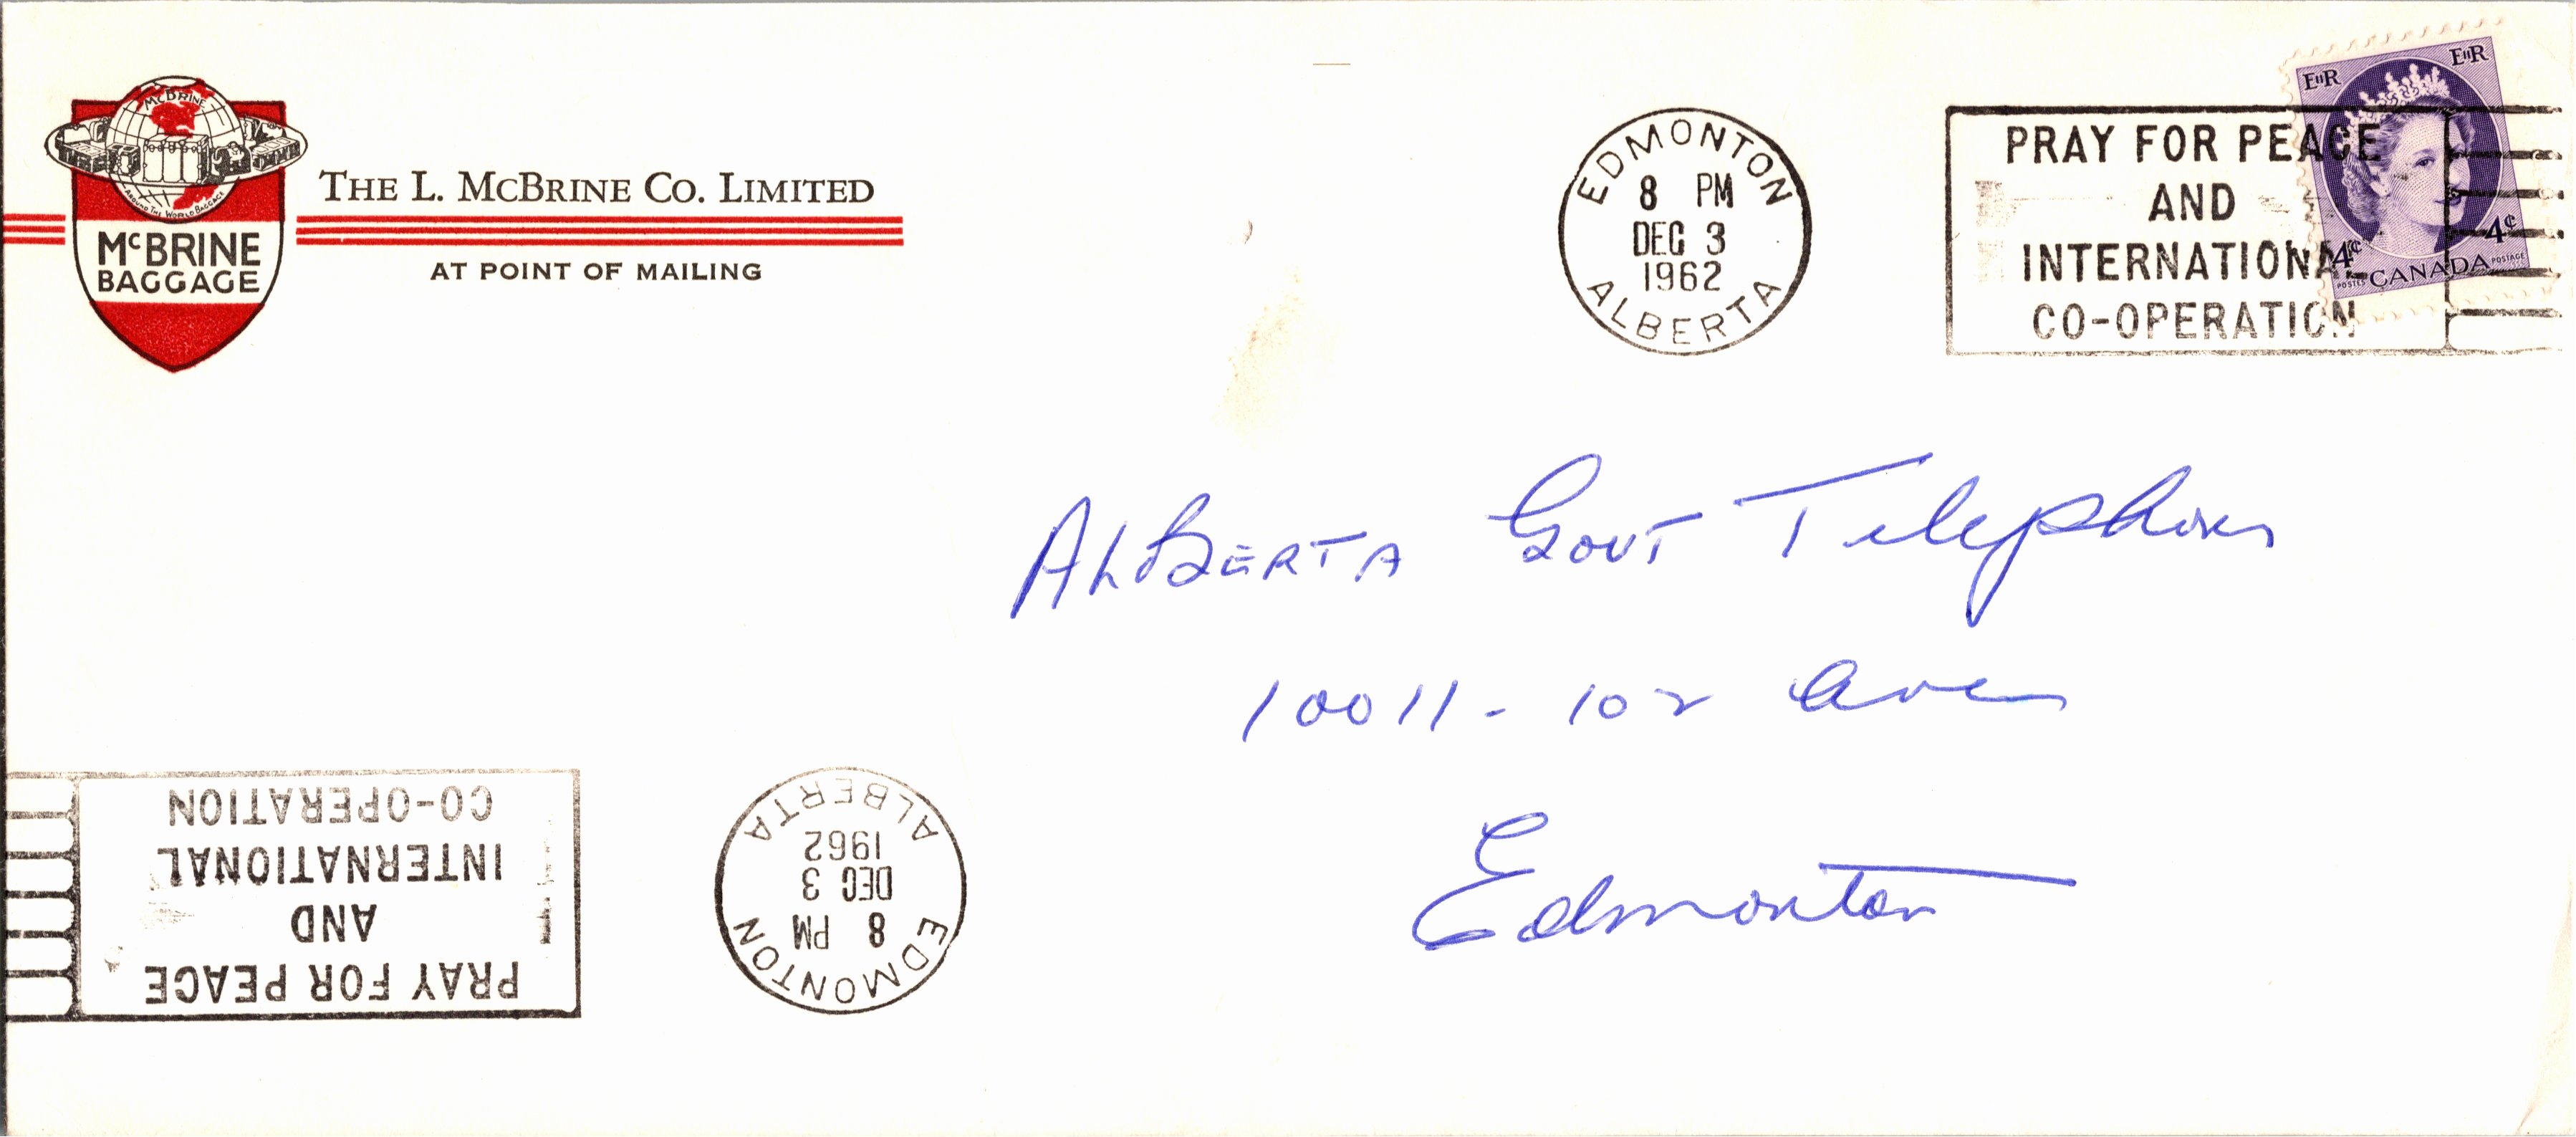 McBRINE
AROUND THE WORLD BAGGAGE
McBRINE
BAGGAGE
THE L. McBRINE CO. LIMITED
AT POINT OF MAILING
EDMONTON
8 PM
DEC 3
1962
ALBERTA
PRAY FOR PEACE
AND
INTERNATIONAL
CO-OPERATION
EIIR EIIR
4¢ 4¢
POSTES CANADA POSTAGE
ALBERTA GOVT Telephones
10011 - 102 Ave
Edmonton
PRAY FOR PEACE
AND
INTERNATIONAL
CO-OPERATION
EDMONTON
8 PM
DEC 3
1962
ALBERTA